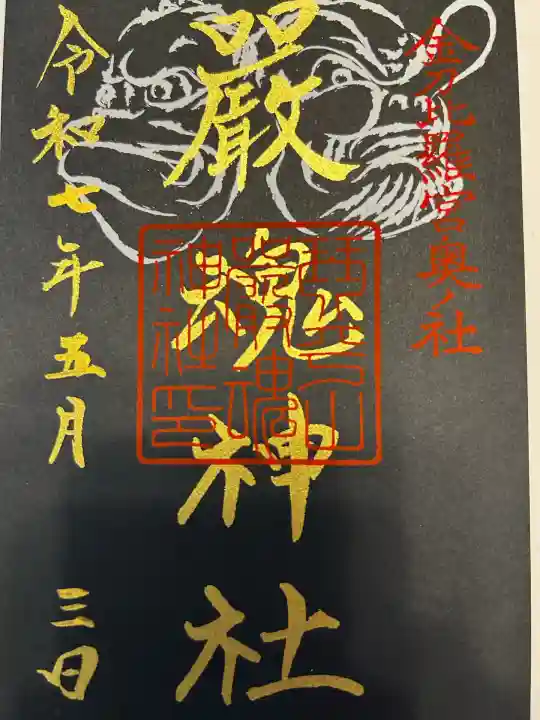 金刀比羅宮奥ノ社
嚴魂神社
令和七年五月三日